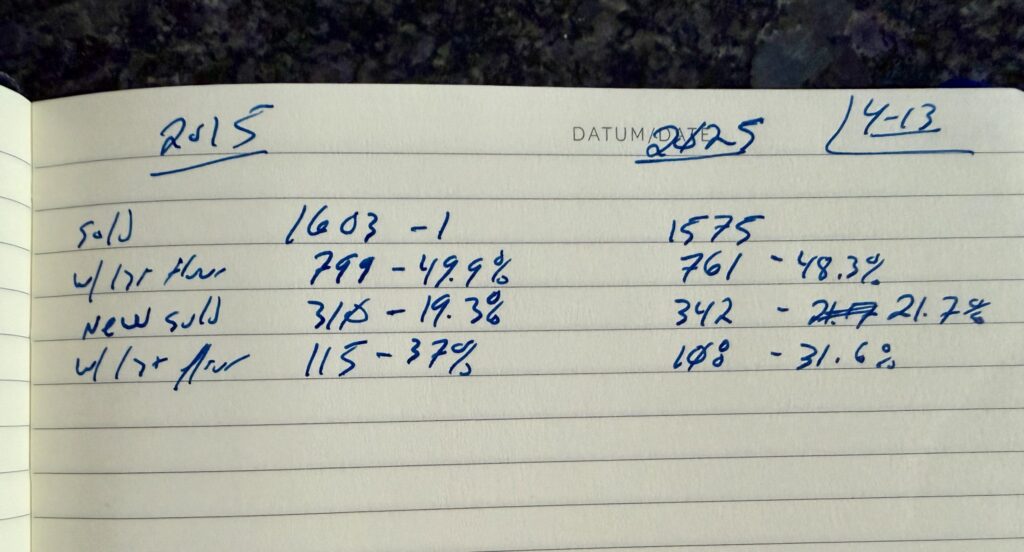 2015 DATUM/DATE 2025 4-13
sold 1603 - 1 1575
w/ 1st floor 799 - 49.9% 761 - 48.3%
New sold 310 - 19.3% 342 - 21.7%
w/ 1st floor 115 - 37% 108 - 31.6%